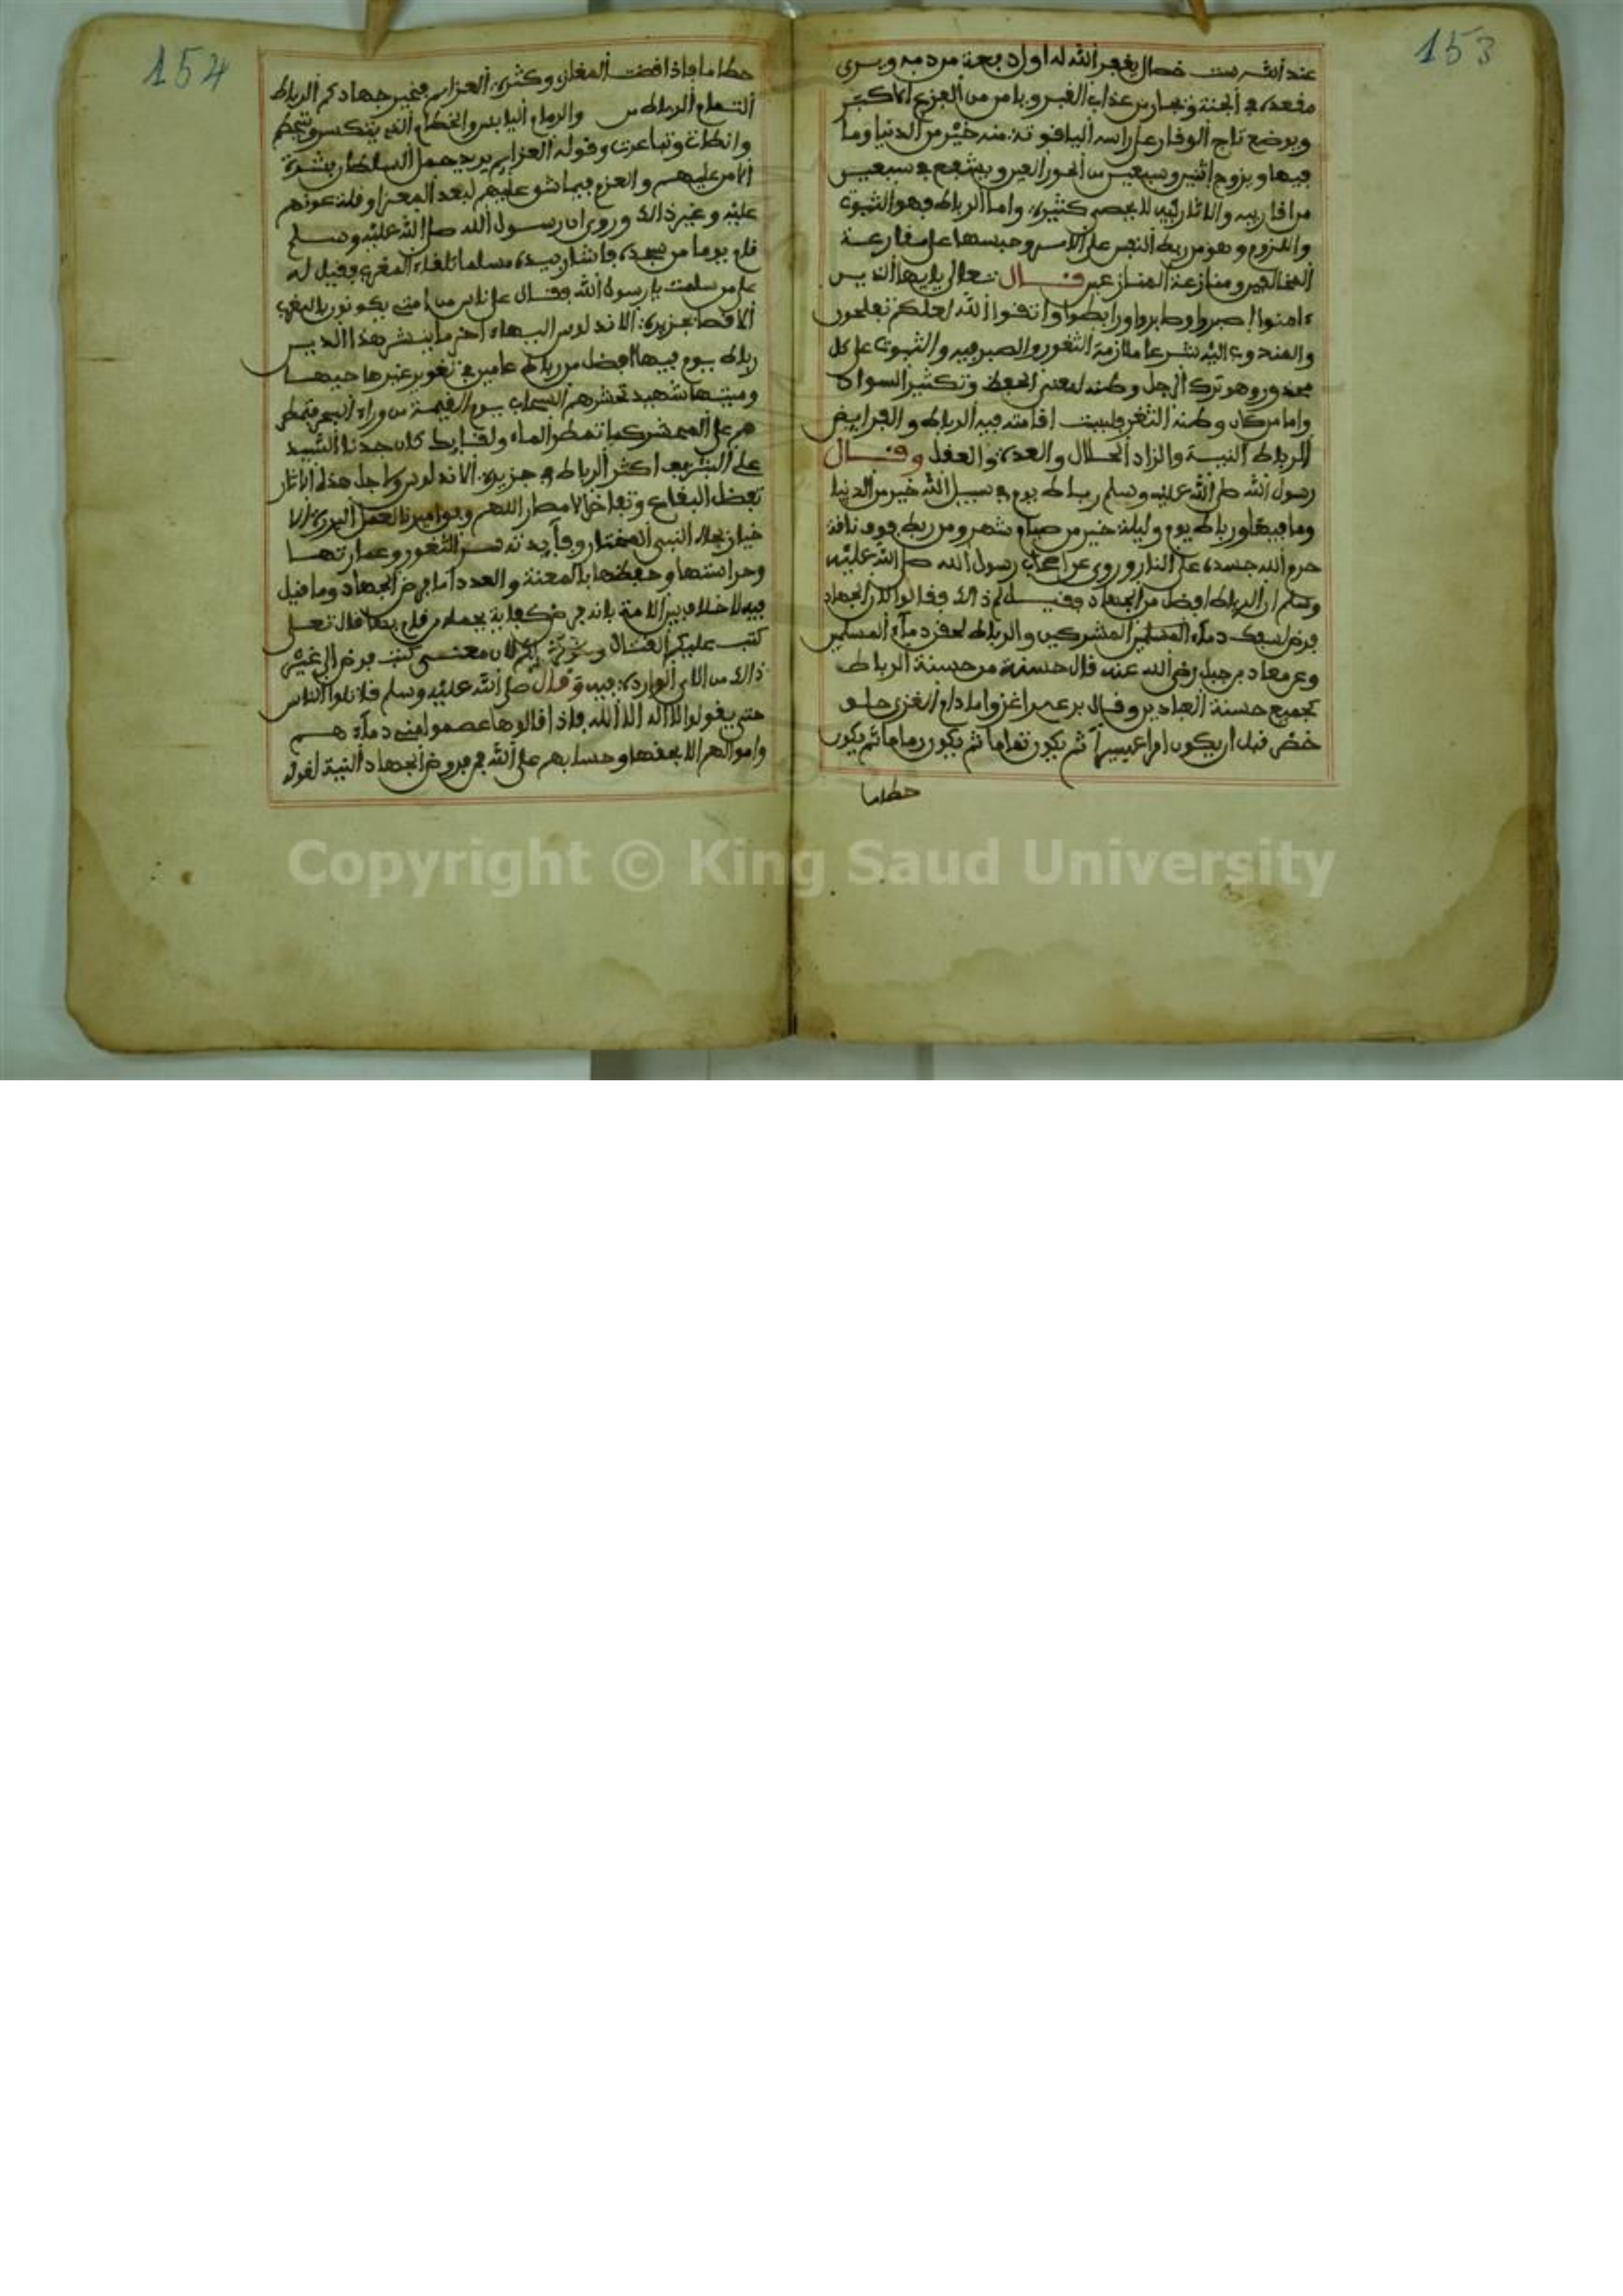 153
عند الله ست خصال يغفر الله له اول دفعة من دمه ويرى
مقعده في الجنة ويجار من عذاب القبر ويامن من الفزع الاكبر
ويوضع تاج الوقار على راسه الياقوتة منه خير من الدنيا وما
فيها ويزوج اثنين وسبعين من الحور العين ويشفع في سبعين
من اقاربه والاثار فيه لا يحصى كثيرة واما الرباط فهو الثبوت
واللزوم وهو من ربط النفس على الامر وحبسها على مقارعة
المخالفين ومنازعة المنازعين قال تعالى يايها الذين
ءامنوا اصبروا وصابروا ورابطوا واتقوا الله لعلكم تفلحون
والمندوب اليه شرعا ملازمة الثغور والصبر فيه والثبوت على كل
محذور وهو ترك الرجل وطنه لمعنى الحفظ وتكثير السواد
واما من كان وطنه الثغر فليست اقامته فيه الرباط والفرايض
الرباط النية والزاد الحلال والعدة والعقل وقال
رسول الله صلى الله عليه وسلم رباط يوم في سبيل الله خير من الدنيا
وما فيها ورباط يوم وليلة خير من صيام شهر ومن ربط فوق ناقة
حرم الله جسده على النار وروي عن اصحاب رسول الله صلى الله عليه
وسلم ان الرباط افضل من الجهاد وقيل لم ذالك فقالوا لان الجهاد
فرض لسفك دماء المشركين والرباط لحقن دماء المسلمين
وعن معاذ بن جبل رضي الله عنه قال حسنة من حسنة الرباط
كجميع حسنة العابدين وقال بن عمر اغزوا مادام الغزى حلو
خضر قبل ان يكون امرا عسيرا ثم يكون ثماما ثم يكون رماما ثم يكون
حطاما
154
حطاما فاذا افضت المغازي وكثرت العزايم فخير جهادكم الرباط
الثمام الرطب من والرمام اليابس والحطام الذي يتكسر ويتحطم
وانطات وتباعرت وقوله العزايم يريد حمل السلطان بشدة
الامر عليهم والعزم فيما شق عليهم لبعد المغزا وقلة عونهم
عليه وغير ذالك وروي ان رسول الله صلى الله عليه وسلم
قام يوما من مسجده فاشار بيده مسلما تلقاء المغرب فقيل له
على من سلمت يا رسول الله فقال على ناس من امتي يكونون بالمغرب
الاقصا بجزيرة الاندلوس البهاء اخر ما ينشر هذا الدين
رباط يوم فيها افضل من رباط عامين في ثغور غيرها حيها
وميتها شهيد تحشرهم السحاب يوم القيمة من وراء البحر فتمطر
هم على المحشر كما تمطر الماء ولقد كان جدنا السيد
علي الشريف اكثر الرباط في جزيرة الاندلوس ولاجل هذه الاثار
تفضل البقاع وتفاخر الامصار اللهم وفق اميرنا لعمل البر
خيار بجاه النبي المختار وفايدته سر الثغور وعمارتها
وحراستها وحفظها بالمعنة والعدد اما فرض الجهاد وما قيل
فيه لا خلاف بين الامة بانه فرض كفاية يحمله من قام به قال تعلى
كتب عليكم القتال وهو كره لكم لان معنى كتب فرض الى غير
ذالك من الاي الواردة فيه وقال صلى الله عليه وسلم قاتلوا الناس
حتى يقولوا لا اله الا الله فاذا قالوها عصموا مني دماءهم
واموالهم الا بحقها وحسابهم على الله فمن فروض الجهاد النية لقوله
Copyright © King Saud University